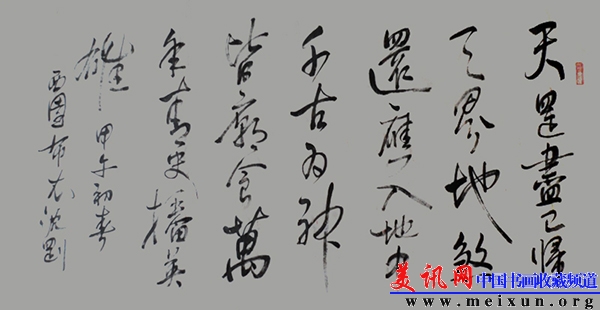 天罡盡已歸
天界地煞
還應入地中
千古为神
皆廟食萬
年青史播英
雄 甲午初春
西園布衣
美讯网 中国书画收藏频道
www.meixun.org